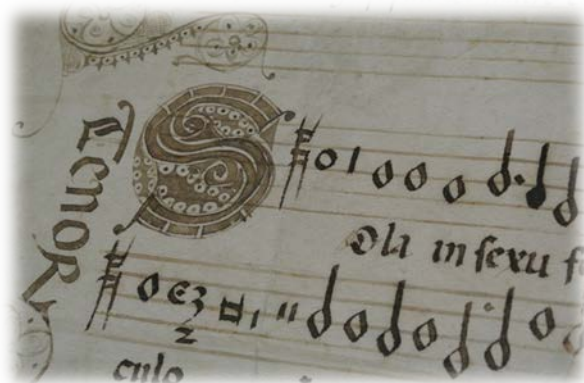 Tenor
Sola in sexu f
culo